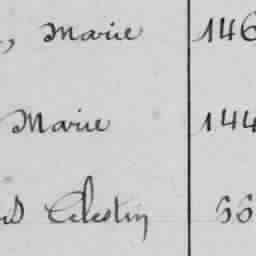 , Marie 146
Marie 144
Célestin 66